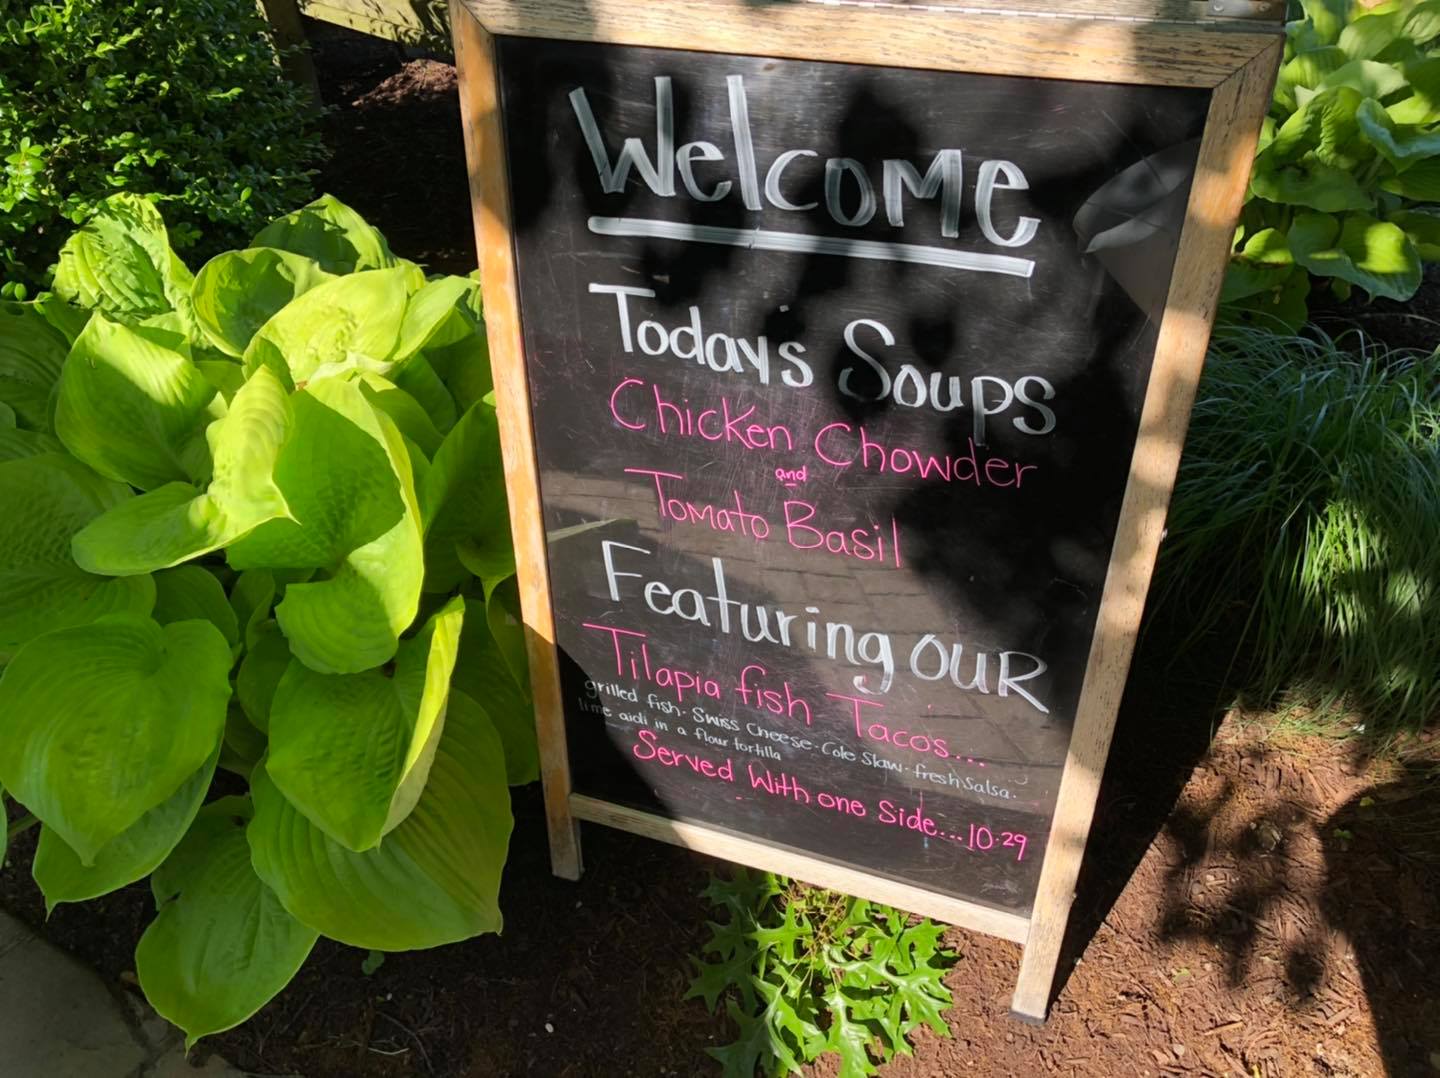 Welcome
Today's Soups
Chicken Chowder
and
Tomato Basil
Featuring our
Tilapia fish Tacos....
grilled fish. Swiss Cheese. Cole Slaw. fresh Salsa.
lime aidi in a flour tortilla
Served With one Side...10.29